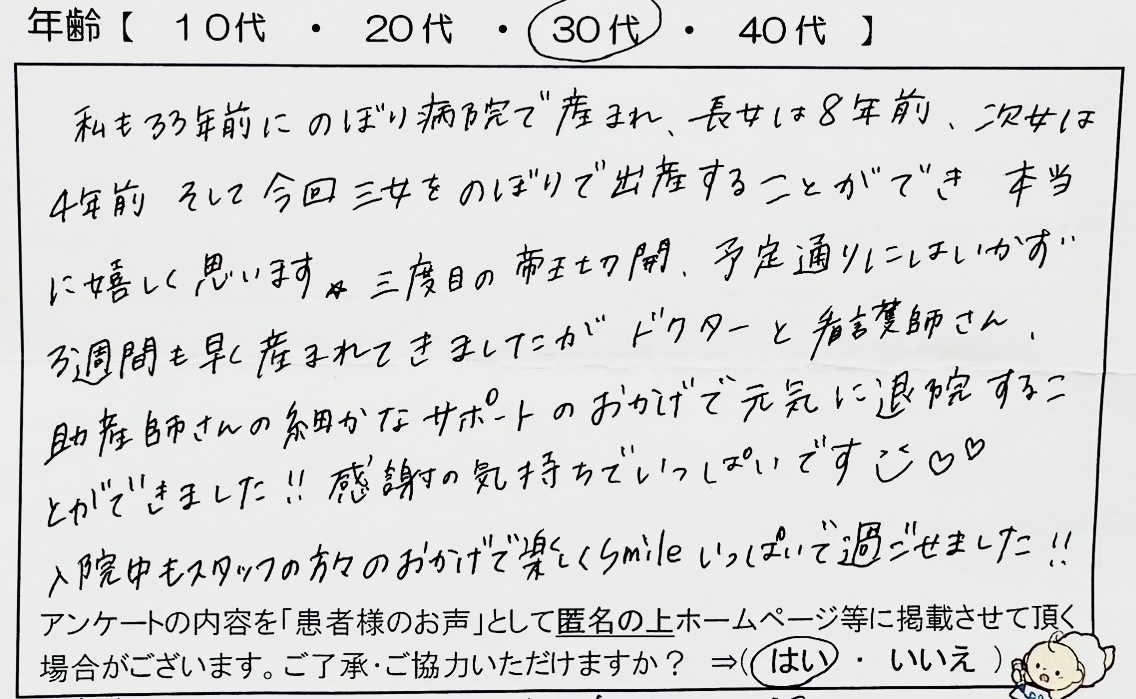 年齢【 10代 ・ 20代 ・ 30代 ・ 40代 】
私も33年前にのぼり病院で産まれ、長女は8年前、次女は
4年前 そして今回三女をのぼりで出産することができ 本当
に嬉しく思います☆ 三度目の帝王切開、予定通りにはいかず
3週間も早く産まれてきましたがドクターと看護師さん、
助産師さんの細かなサポートのおかげで元気に退院するこ
とができました!! 感謝の気持ちでいっぱいです♡♡
入院中もスタッフの方々のおかげで楽しくsmileいっぱいで過ごせました!!
アンケートの内容を「患者様のお声」として匿名の上ホームページ等に掲載させて頂く
場合がございます。ご了承・ご協力いただけますか? ⇒(はい ・ いいえ )